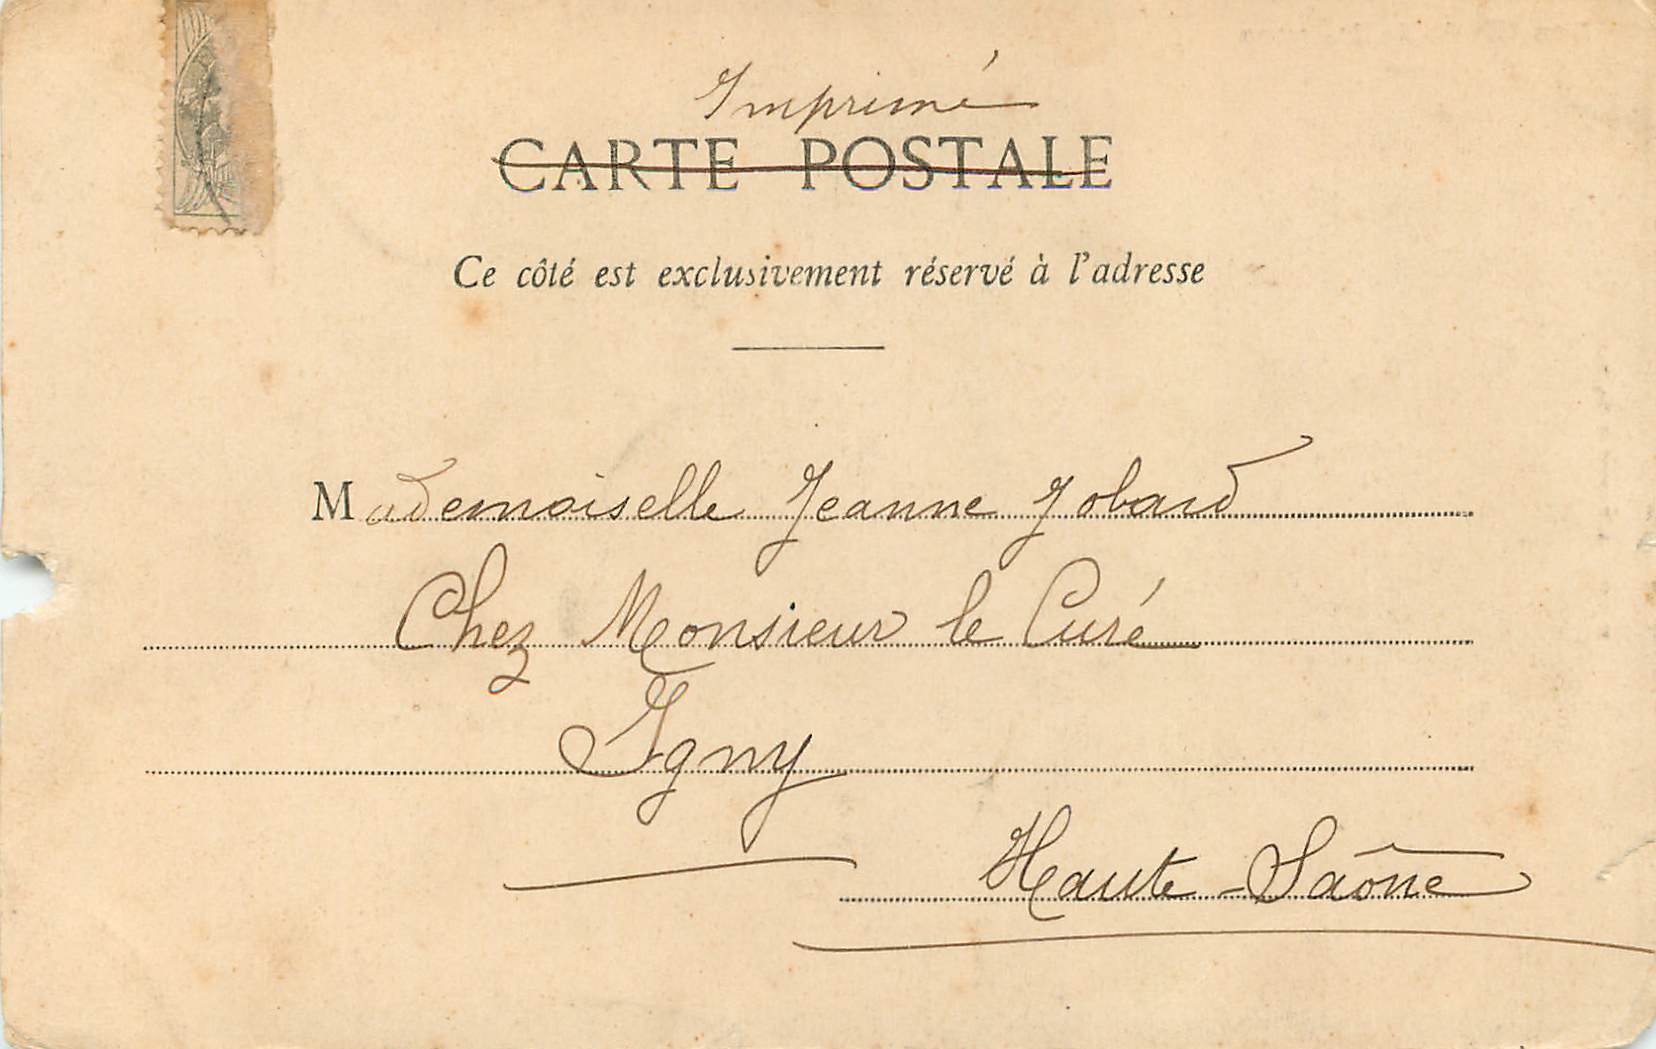 Imprimé
CARTE POSTALE
Ce côté est exclusivement réservé à l'adresse
Mademoiselle Jeanne Jobard
Chez Monsieur le Curé
Igny
Haute-Saône